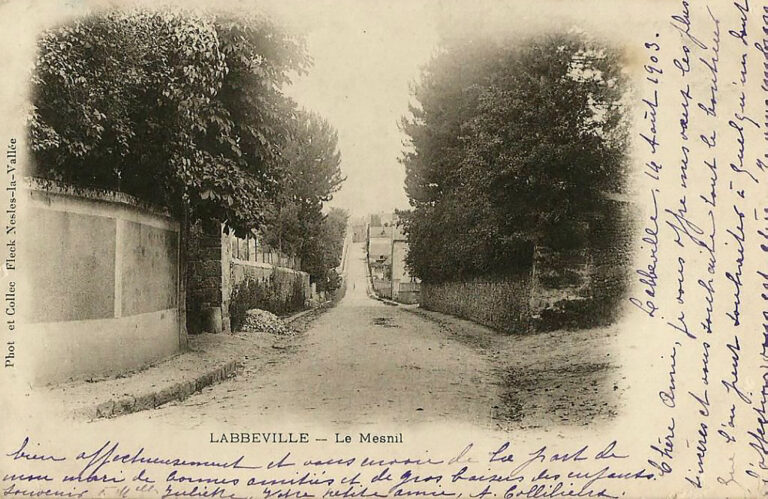 Phot et Collec Fleck Nesles-la-Vallée
LABBEVILLE — Le Mesnil
Labbeville, 14 Août 1903.
Chère Amie, je vous offre mes vœux les plus
sincères et vous souhaite tout le bonheur
que l'on peut souhaiter à quelqu'un dont
l'affection vous est
bien affectueusement et vous envoie de la part de
mon mari de bonnes amitiés et de gros baisers des enfants.
Souvenir à Mlle Juliette, Votre petite amie, A.